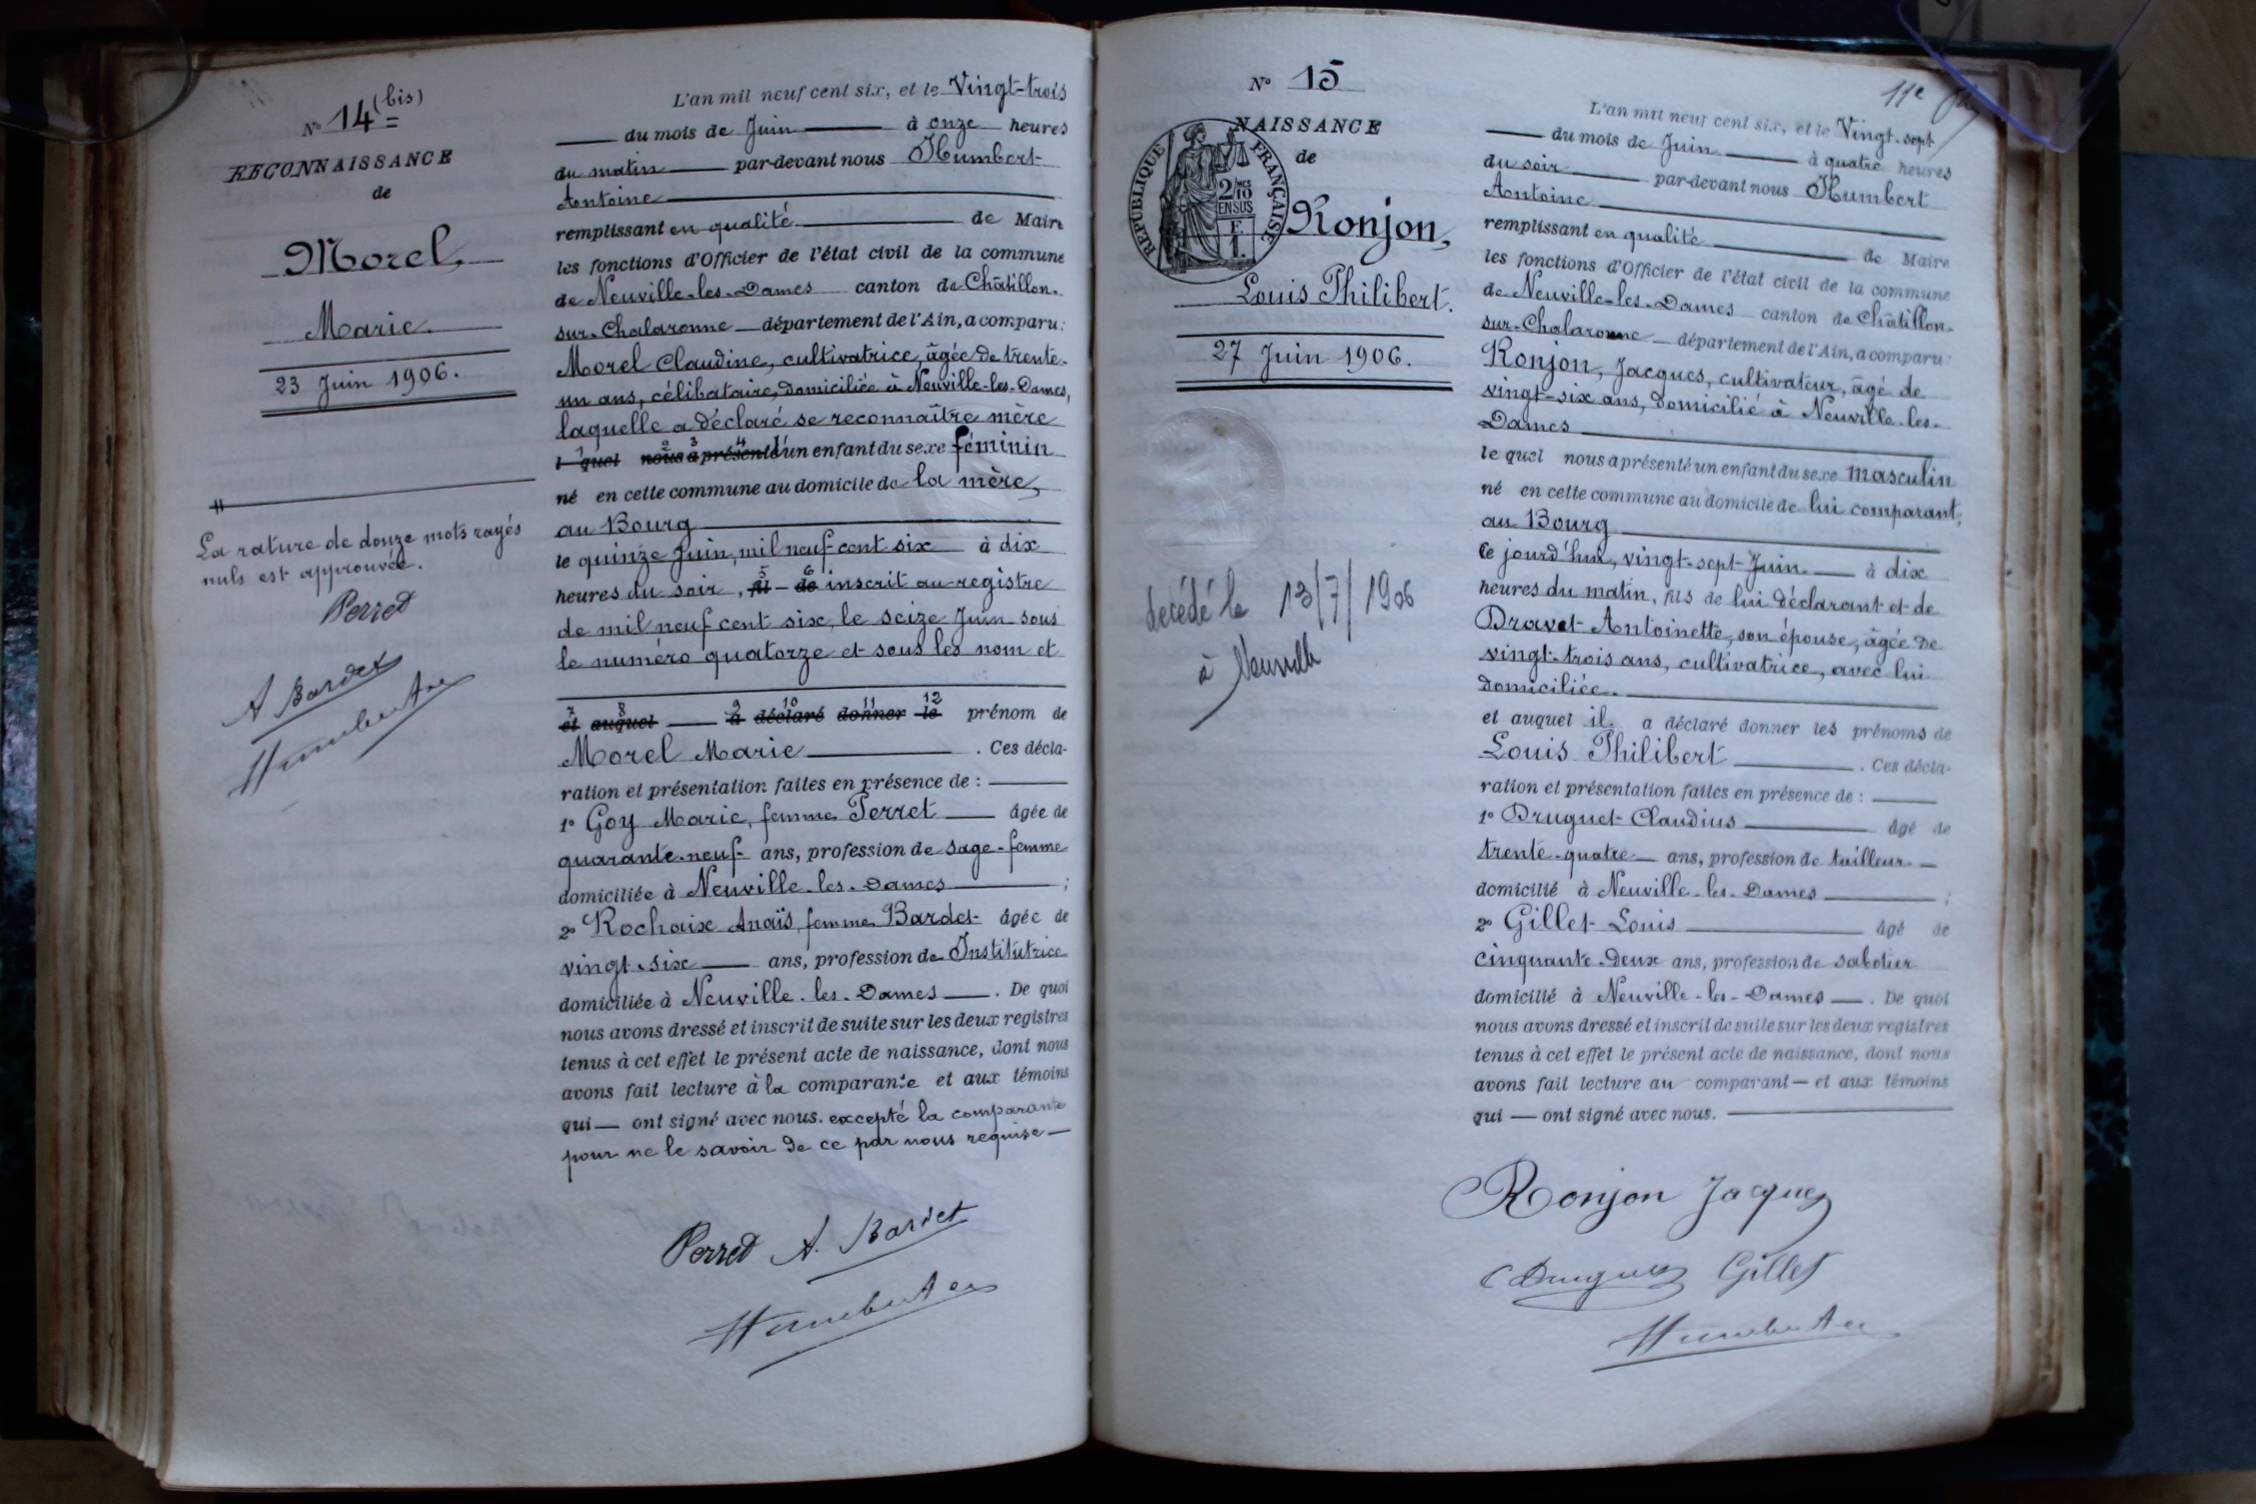 N° 14 (bis)
RECONNAISSANCE
de
Morel
Marie
23 Juin 1906.
La rature de douze mots rayés
nuls est approuvée.
Perret
A Bardet
Humbert Ane
L'an mil neuf cent six, et le Vingt-trois
du mois de Juin à onze heures
du matin par-devant nous Humbert
Antoine
remplissant en qualité de Maire
les fonctions d'Officier de l'état civil de la commune
de Neuville-les-Dames canton de Châtillon-
sur-Chalaronne département de l'Ain, a comparu:
Morel Claudine, cultivatrice, âgée de trente-
un ans, célibataire, domiciliée à Neuville-les-Dames,
laquelle a déclaré se reconnaître mère
1 2 3 4
l quel nous a présenté d'un enfant du sexe féminin
né en cette commune au domicile de la mère,
au Bourg
le quinze Juin, mil neuf cent six à dix
5 6
heures du soir, fil - de inscrit au registre
de mil neuf cent six, le seize Juin sous
le numéro quatorze et sous les nom et
7 8 9 10 11 12
et auquel a déclaré donner le prénom de
Morel Marie . Ces décla-
ration et présentation faites en présence de :
1° Goy Marie, femme Perret âgée de
quarante-neuf ans, profession de sage-femme
domiciliée à Neuville-les-Dames ;
2° Rochaix Anaïs, femme Bardet âgée de
vingt-six ans, profession de Institutrice
domiciliée à Neuville-les-Dames . De quoi
nous avons dressé et inscrit de suite sur les deux registres
tenus à cet effet le présent acte de naissance, dont nous
avons fait lecture à la comparante et aux témoins
qui ont signé avec nous. excepté la comparante
pour ne le savoir de ce par nous requise
Perret A. Bardet
Humbert Ane
N° 15
NAISSANCE
de
RÉPUBLIQUE FRANÇAISE
2/10 EN SUS
F
1.
Ronjon,
Louis Philibert.
27 Juin 1906.
décédé le 13/7/1906
à Neuville
11e
L'an mil neuf cent six, et le Vingt-sept
du mois de Juin à quatre heures
du soir par-devant nous Humbert
Antoine
remplissant en qualité de Maire
les fonctions d'Officier de l'état civil de la commune
de Neuville-les-Dames canton de Châtillon-
sur-Chalaronne département de l'Ain, a comparu:
Ronjon, Jacques, cultivateur, âgé de
vingt-six ans, domicilié à Neuville-les-
Dames
le quel nous a présenté un enfant du sexe masculin
né en cette commune au domicile de lui comparant,
au Bourg
ce jourd'hui, vingt-sept Juin à dix
heures du matin, fils de lui déclarant et de
Dravet Antoinette, son épouse, âgée de
vingt-trois ans, cultivatrice, avec lui
domiciliée.
et auquel il a déclaré donner les prénoms de
Louis Philibert . Ces décla-
ration et présentation faites en présence de :
1° Druguet Claudius âgé de
trente-quatre ans, profession de tailleur
domicilié à Neuville-les-Dames ;
2° Gillet Louis âgé de
cinquante-deux ans, profession de sabotier
domicilié à Neuville-les-Dames . De quoi
nous avons dressé et inscrit de suite sur les deux registres
tenus à cet effet le présent acte de naissance, dont nous
avons fait lecture au comparant et aux témoins
qui ont signé avec nous.
Ronjon Jacques
C Druguet Gillet
Humbert Ane